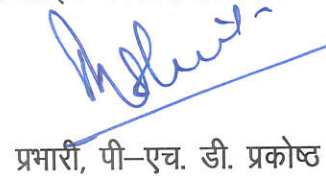 प्रभारी, पी–एच. डी. प्रकोष्ठ